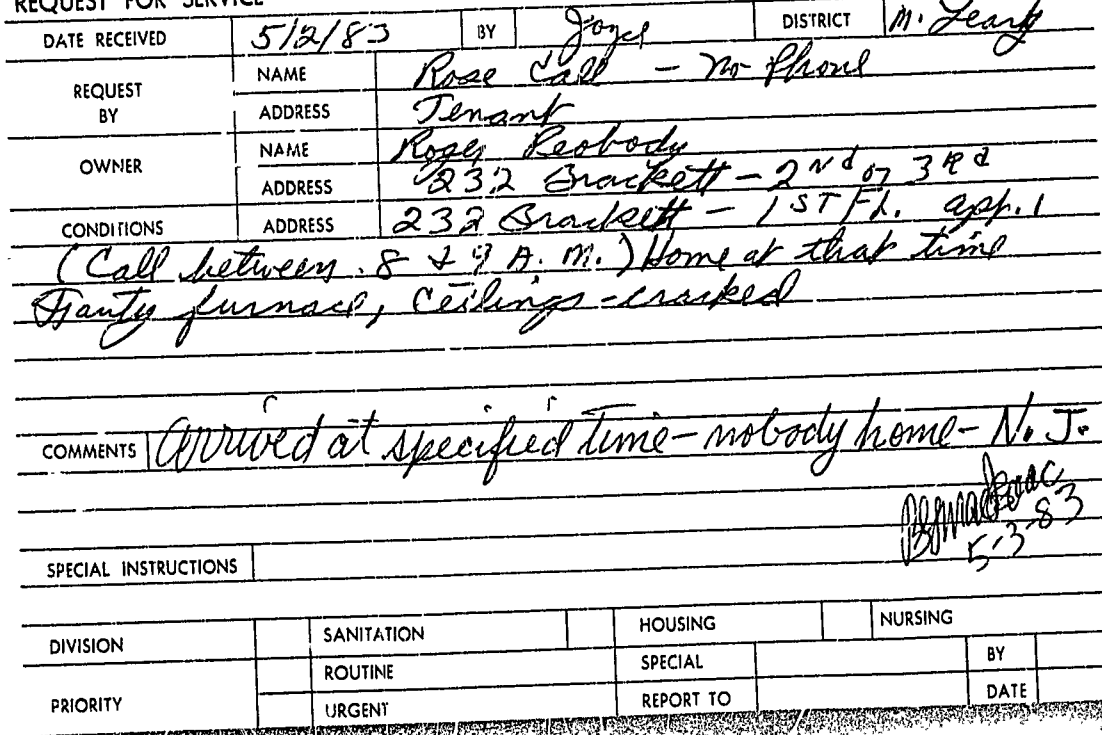 REQUEST FOR SERVICE
DATE RECEIVED 5/2/83 BY Joyce DISTRICT M. Leary
REQUEST BY NAME Rose Call - no phone
ADDRESS Tenant
OWNER NAME Roger Peobody
ADDRESS 232 Brackett - 2nd or 3Rd
CONDITIONS ADDRESS 232 Brackett - 1ST Fl. app. 1
(Call between 8 & 9 A.M.) Home at that time
Fauty furnace, Ceilings-cracked
COMMENTS Arrived at specified time - nobody home - N.J.
5-3-83
SPECIAL INSTRUCTIONS
DIVISION SANITATION HOUSING NURSING
PRIORITY ROUTINE SPECIAL BY
URGENT REPORT TO DATE